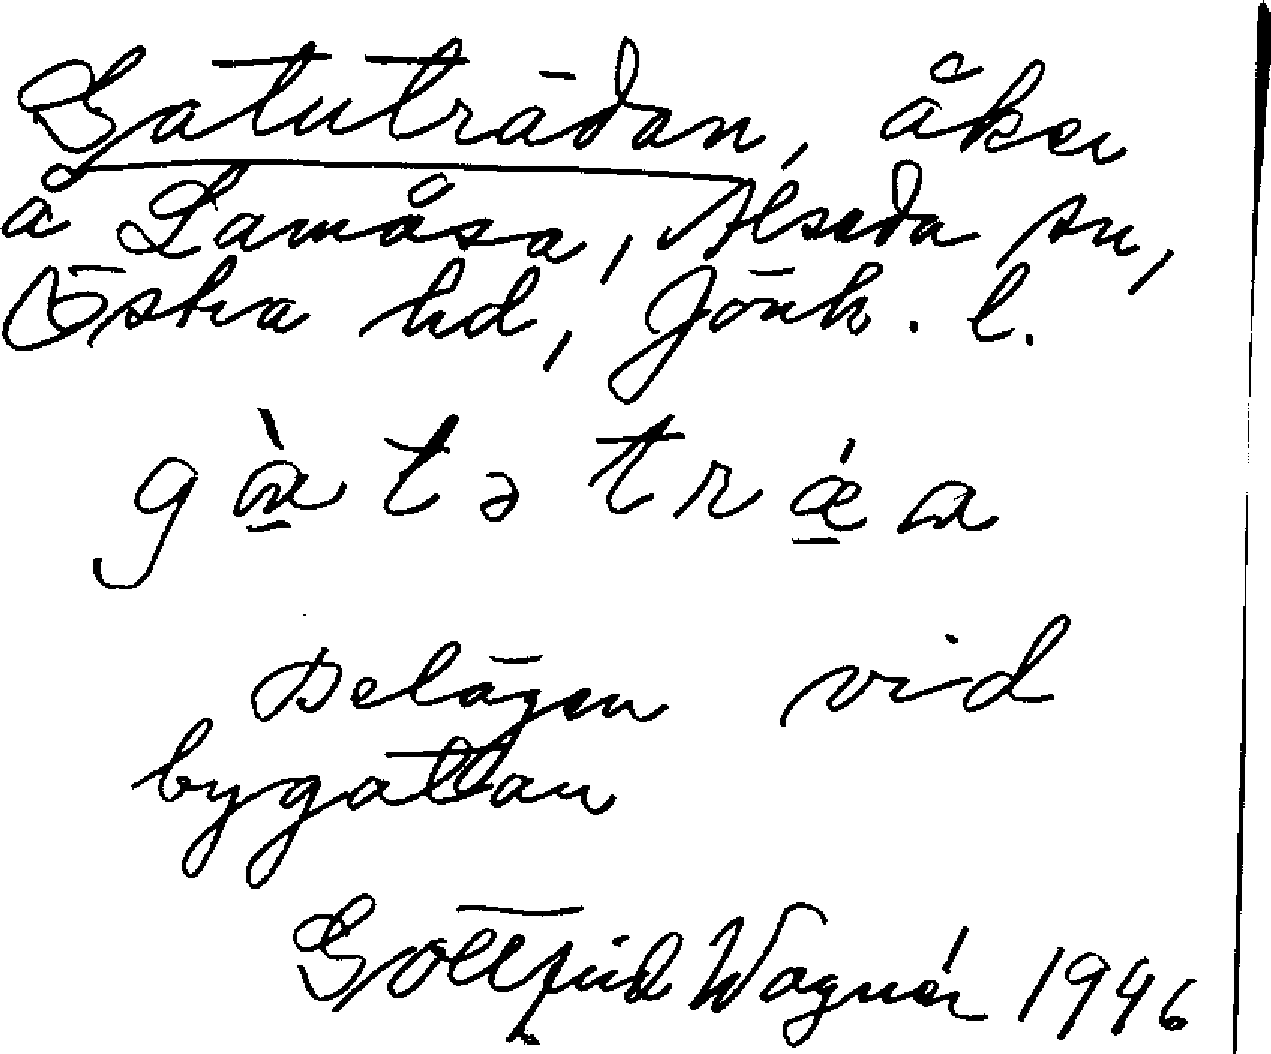 Gatuträdan, åker
å Lamåsa, Alseda sn,
Östra hd, Jönk. l.
gàtətrǽa
Belägen vid
bygatan
Gottfrid Wagnér 1946